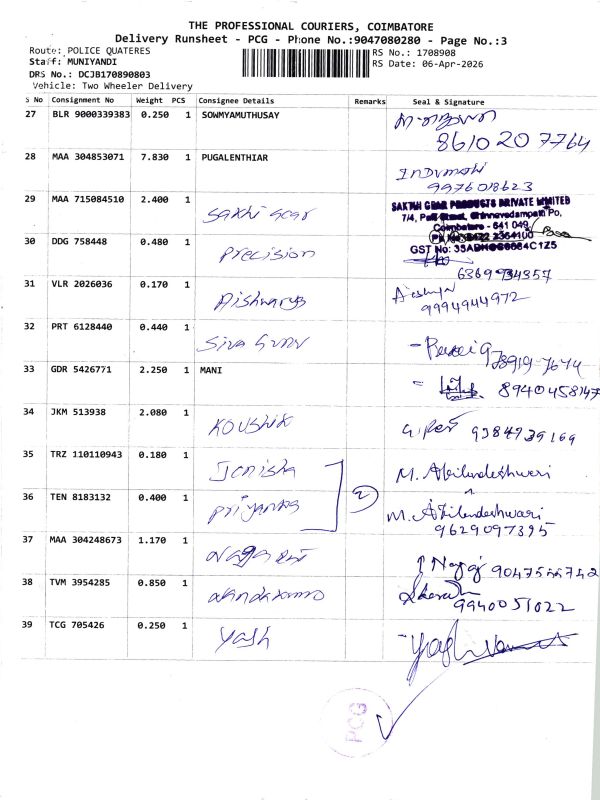 THE PROFESSIONAL COURIERS, COIMBATORE
Delivery Runsheet - PCG - Phone No.:9047080280 - Page No.:3
Route: POLICE QUATERES
Staff: MUNIYANDI
DRS No.: DCJB170890803
Vehicle: Two Wheeler Delivery
RS No.: 1708908
RS Date: 06-Apr-2026
S No Consignment No Weight PCS Consignee Details Remarks Seal & Signature
27 BLR 9000339383 0.250 1 SOWMYAMUTHUSAY
8610207764
28 MAA 304853071 7.830 1 PUGALENTHIAR
Indumathi
9976018623
29 MAA 715084510 2.400 1 Sakthi Gear
SAKTHI GEAR PRODUCTS PRIVATE LIMITED
7/4, Chinnavedampatti Po,
Coimbatore - 641 049
30 DDG 758448 0.480 1 Precision
GST No:
6369934357
31 VLR 2026036 0.170 1 Aishwarya
9994944972
32 PRT 6128440 0.440 1
33 GDR 5426771 2.250 1 MANI
8940458147
34 JKM 513938 2.080 1 Koushik
9384739169
35 TRZ 110110943 0.180 1 Jenisha M. Abilendeshweri
36 TEN 8183132 0.400 1 Priyanka 2 M. Abilendeshwari
9629097395
37 MAA 304248673 1.170 1
38 TVM 3954285 0.850 1
9940051022
39 TCG 705426 0.250 1 Yash Yash
PCG